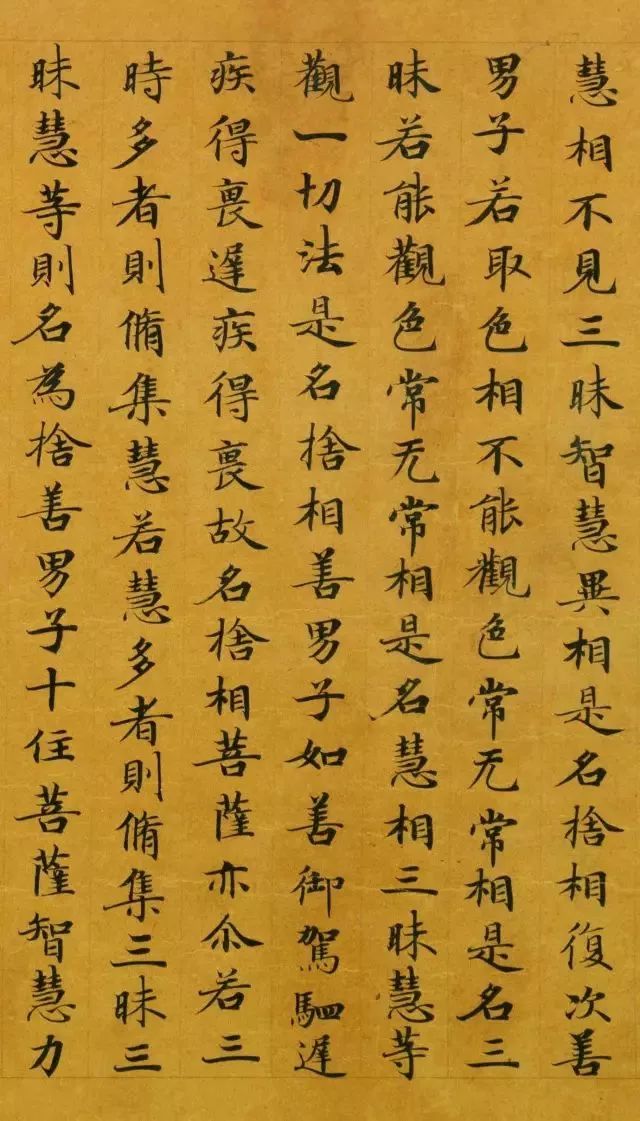 慧相不見三昧智慧異相是名捨相復次善
男子若取色相不能觀色常无常相是名三
昧若能觀色常无常相是名慧相三昧慧等
觀一切法是名捨相善男子如善御駕駟遲
疾得㥿遲疾得㥿故名捨相菩薩亦尒若三
時多者則脩集慧若慧多者則脩集三昧三
昧慧等則名為捨善男子十住菩薩智慧力